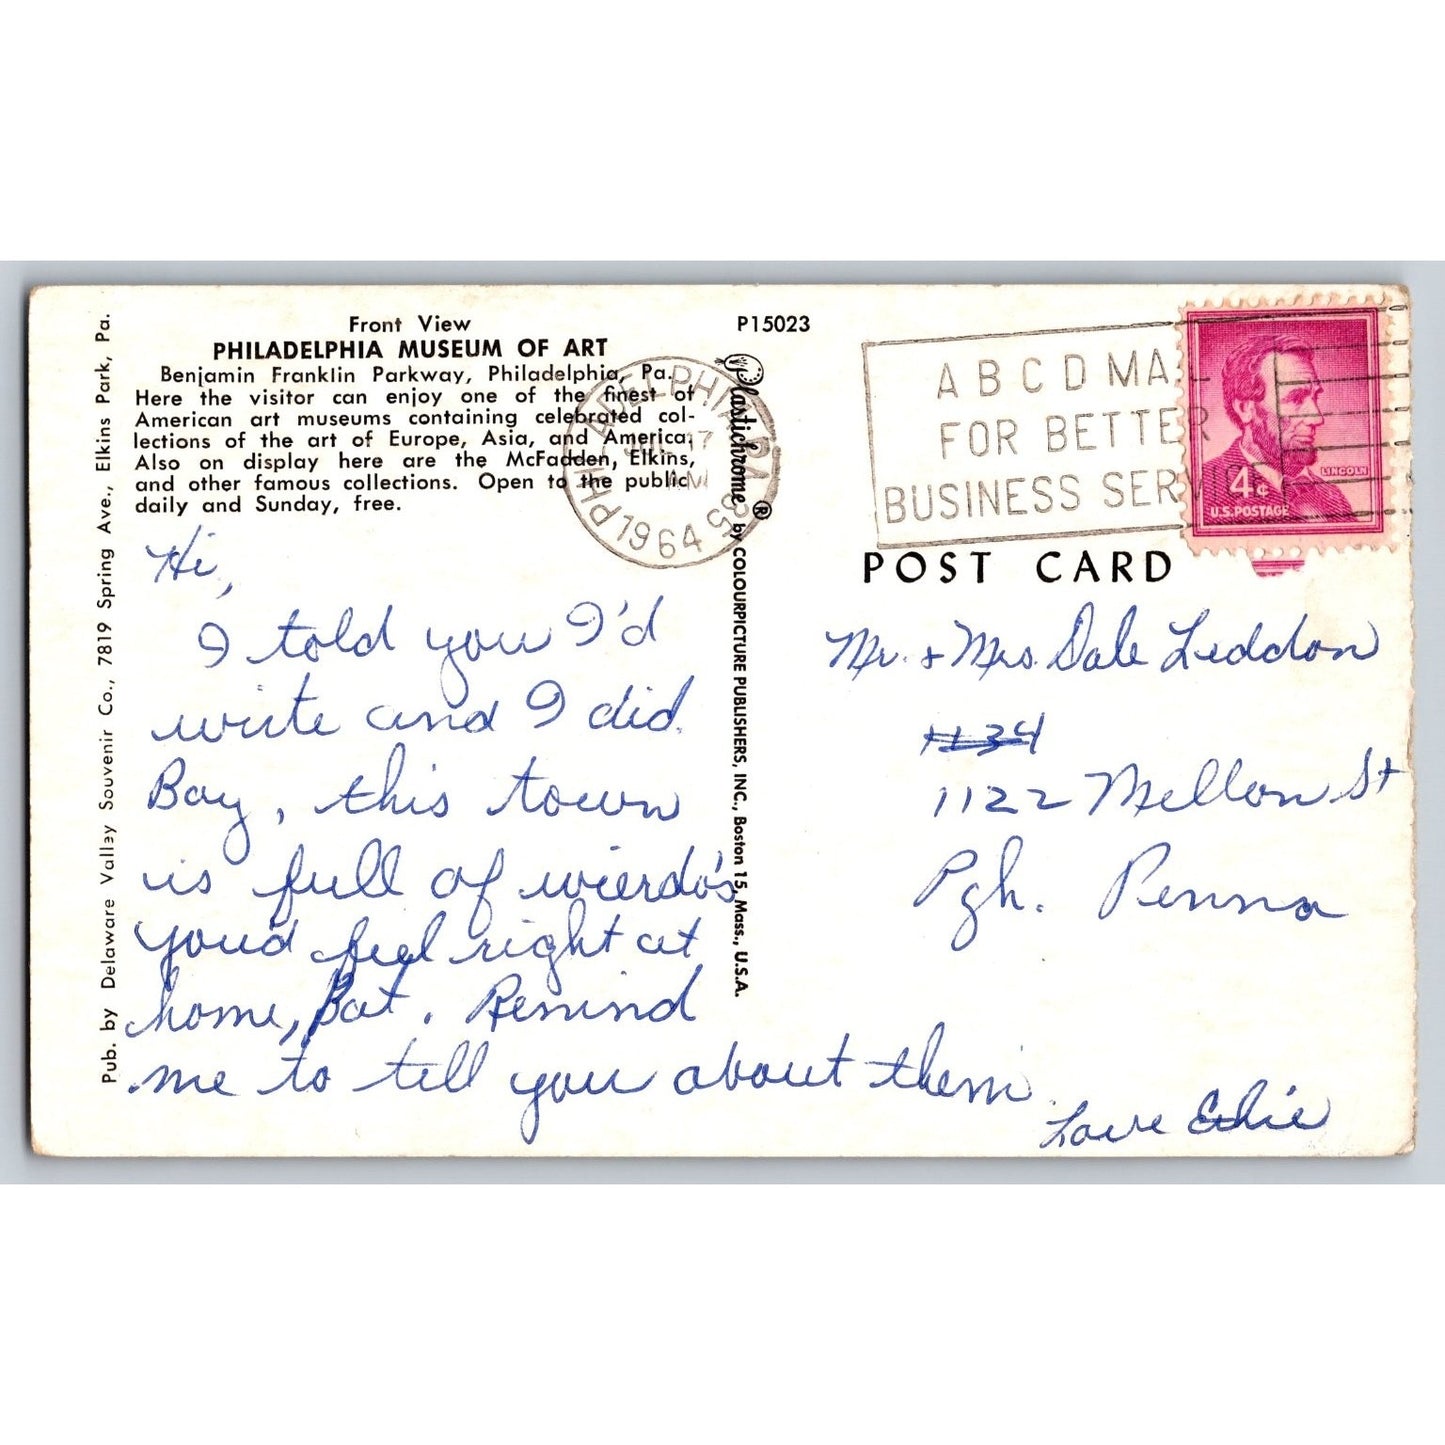 Front View
PHILADELPHIA MUSEUM OF ART
Benjamin Franklin Parkway, Philadelphia, Pa.
Here the visitor can enjoy one of the finest of
American art museums containing celebrated col-
lections of the art of Europe, Asia, and America.
Also on display here are the McFadden, Elkins,
and other famous collections. Open to the public
daily and Sunday, free.
P15023
Pub. by Delaware Valley Souvenir Co., 7819 Spring Ave., Elkins Park, Pa.
Plastichrome® by COLOURPICTURE PUBLISHERS, INC., Boston 15, Mass., U.S.A.
PHILADELPHIA PA
JUL 17
AM
1964
A B C D MAIL
FOR BETTER
BUSINESS SERVICE
LINCOLN
4¢
U.S. POSTAGE
POST CARD
Hi,
I told you I'd
write and I did.
Boy, this town
is full of wierdo's
you'd feel right at
home, Pat. Remind
me to tell you about them.
Love
Mr. + Mrs. Dale Leddon
1134
1122 Mellon St
Pgh. Penna